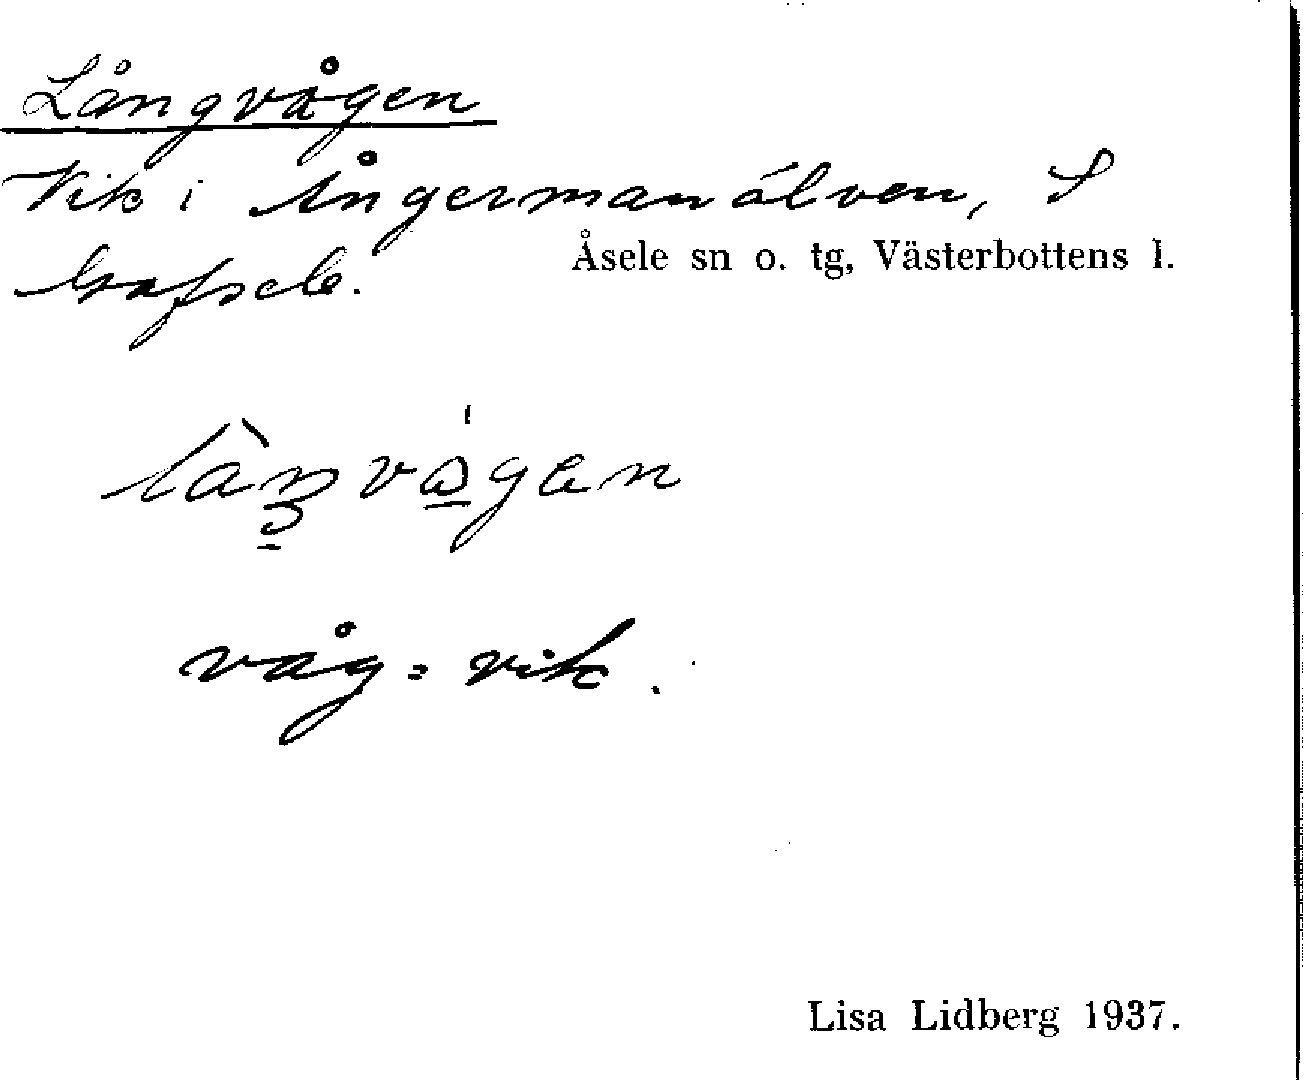 Långvågen
Vik i Ångermanälven, S
Åsele sn o. tg, Västerbottens l.
Gafsele.
våg = vik.
Lisa Lidberg 1937.